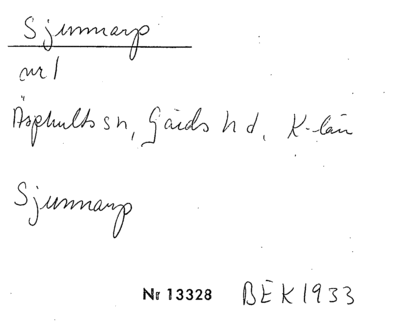 Sjunnarp
nr 1
Äsphults sn, Gärds hd, K-län
Sjunnarp
Nr 13328 BEK 1933